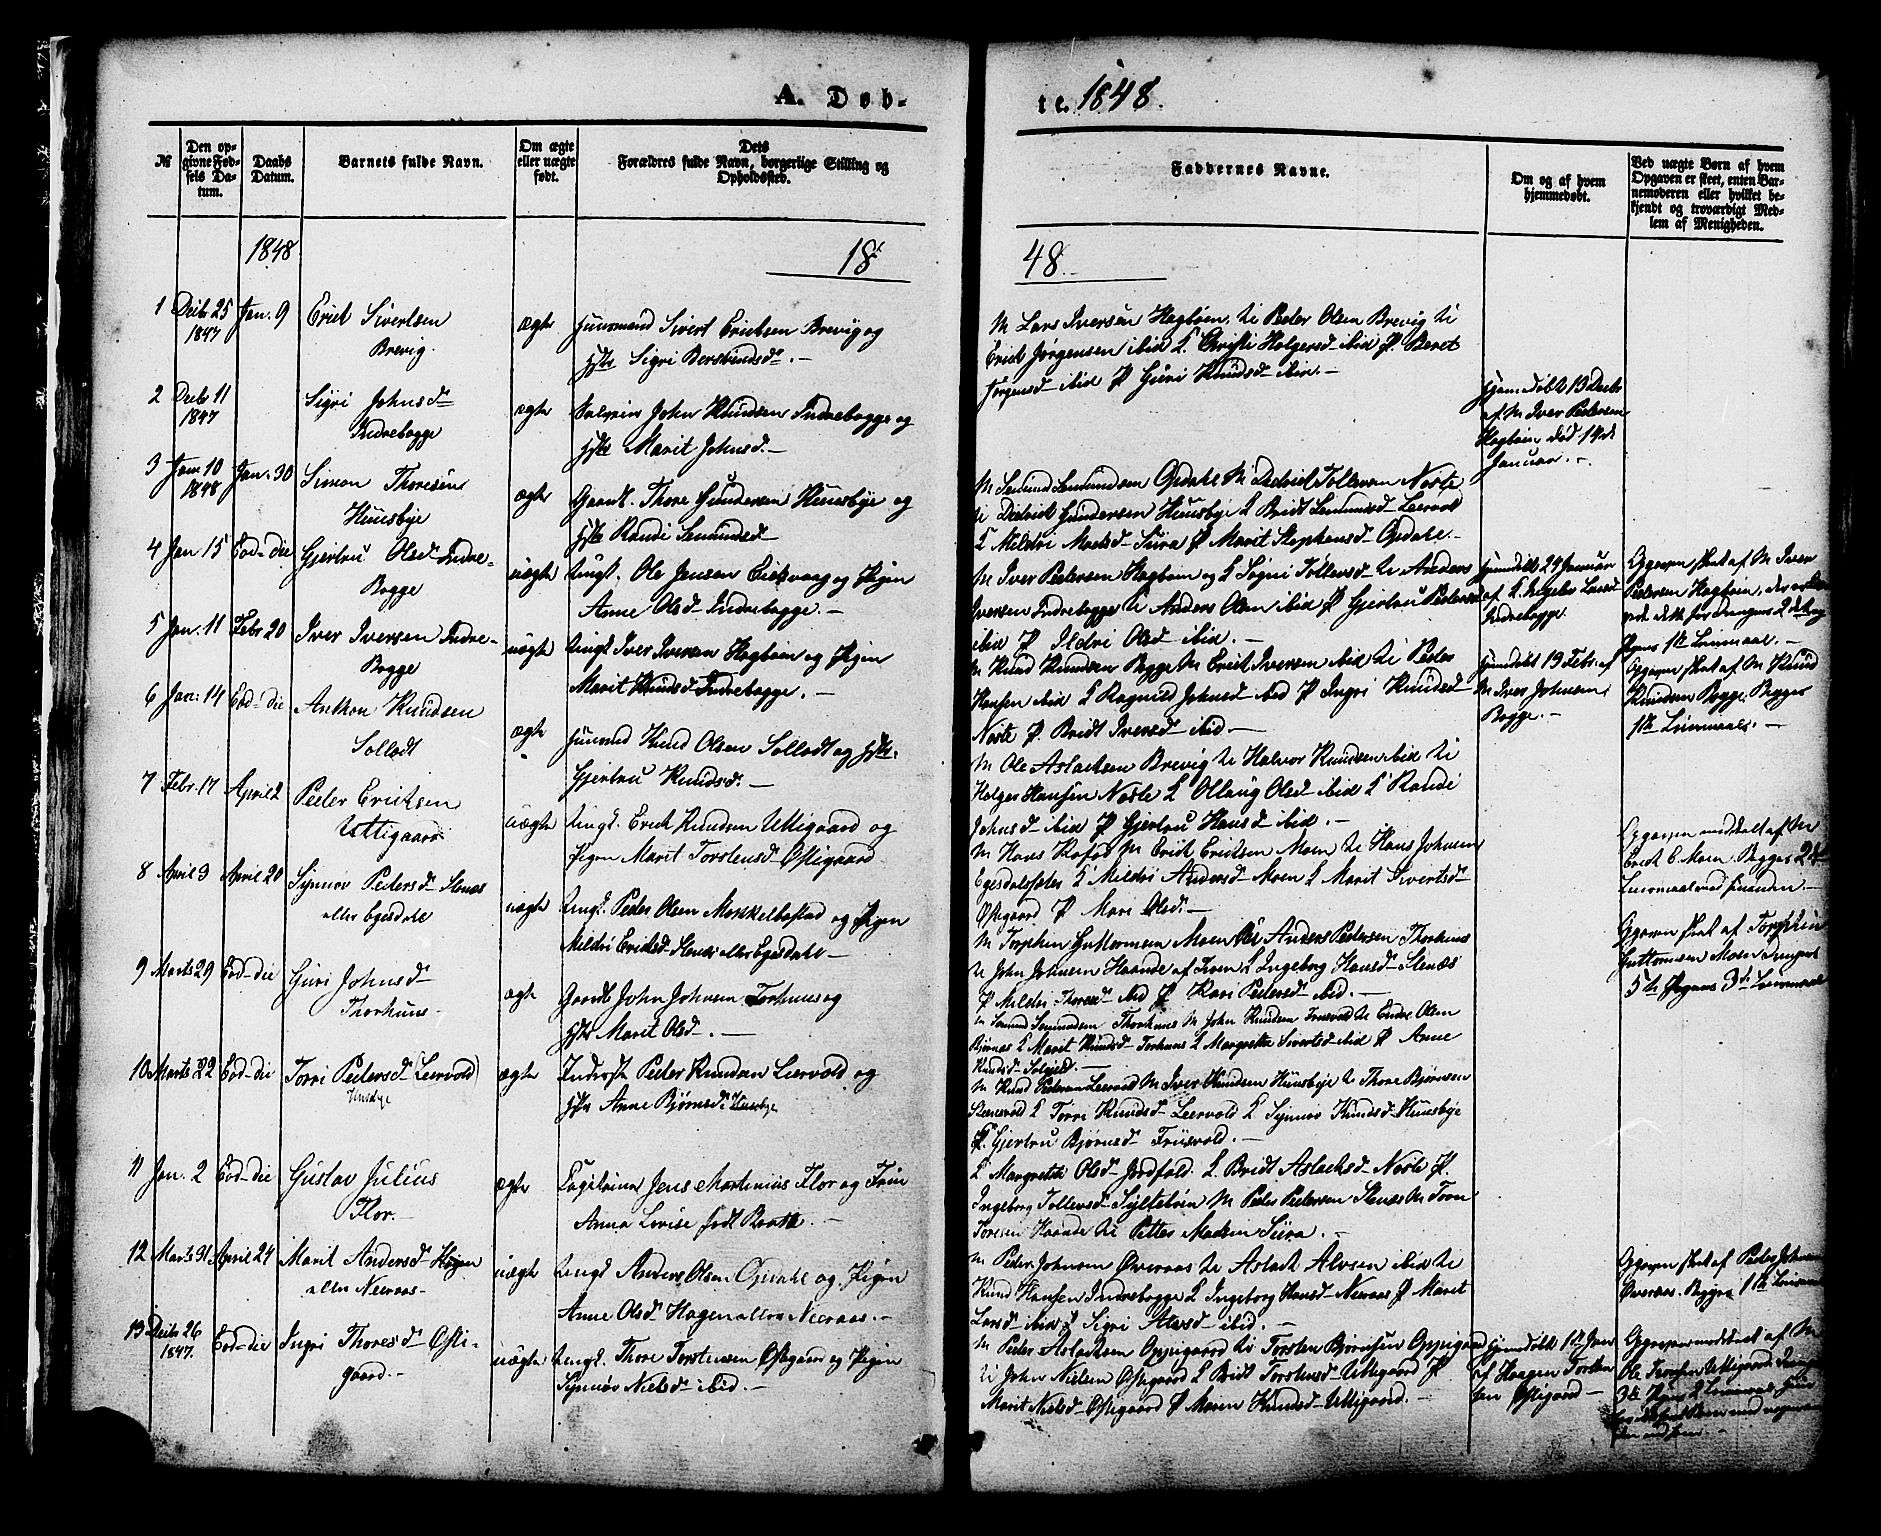 A. Døb-
te. 1848.
№
Den op-
givne Fød-
sels Da-
tum.
Daabs
Datum.
Barnets fulde Navn.
Om ægte
eller uægte
født.
Dets
Forældres fulde Navn, borgerlige Stilling og
Opholdssted.
Faddernes Navne.
Om og af hvem
hjemmedøbt.
Ved uægte Børn af hvem
Opgaven er skeet, enten Bar-
nemoderen eller hvilket be-
kjendt og troværdigt Med-
lem af Menigheden.
1848
18
48.
1 Decbr 25 Jan. 9 Erick Sivertsen
1847
Brevig.
ægte
Huusmand Sivert Ericksen Brevig og
Sigri
M Lars Iversen Hagbøin, U Peder Olsen Brevig U
Erick Jørgensen ibid L. Christi Holgersd ibid P. Beret
Jørgensd ibid P Guri Knudsd ibid.
2 Decbr 11
1847
Sigri Johnsd
Indrebogge
ægte
John Knudsen Indrebogge og
Marit Johnsd.
Hjemdøbt 13 Decbr
af M Iver Pedersen
Hagbøin død 14de
Januar.
3 Jan. 10 Jan. 30 Simon Thoresen
1848
Huusbye
ægte
Gaardb. Thore Gundersen Huusbye og
Randi Semundsd
M Semund Semundsen Opdahl M Didrick Tollevsen Noste
U Didrick Gundersen Huusbye L Bridt Semundsd Leervold
L Mildri Madsd Sura P Marit Stephensd Opdahl.
4 Jan. 15 Eod-die Gjertru Olsd Indre-
Bogge
uægte
Ungk. Ole Jensen Eidsvaag og Pigen
Anne Olsd Indrebogge.
M Iver Pedersen Hagbøin og L Sogni Tollevsd U Anders
Iversen Indrebogge U Anders Olsen ibid P Gjertru Pedersd
ibid P Ildri Olsd ibid.
Hjemdøbt 24 Januar
af L.
Indrebogge
Opgaven skeet af M Iver
Pedersen Hagbøin,
5 Jan. 11 Febr 20 Iver Iversen Indre-
Bogge
uægte
Ungk Iver Iversen Hagbøin og Pigen
Marit Knudsd Indrebogge.
M Knud Knudsen Bogge M Erick Iversen ibid U Peder
Hansen ibid L Ragnild Johnsd ibid P Ingri Knudsd
Noste P. Bridt Iversd ibid
Hjemdøbt 19 Febr. af
M Iver Johnsen
Bogge.
Opgaven skeet af M Knud
Knudsen Bogge, Begges
1ste Leiermaal.
6 Jan. 14 Eod-die Anthon Knudsen
Solladt
ægte
Huusmd Knud Olsen Solladt og
Gjertru Knudsd.
M Ole Aslacksen Brevig U Halvor Knudsen ibid U
Holger Hansen Noste L Ollaug Olsd ibid L Randi
Johnsd ibid P Gjertru Hansd ibid.
7 Febr. 17 April 2 Peder Ericksen
Uttigaard
uægte
Ungk. Erick Knudsen Uttigaard og
Pigen Marit Torstensd Østigaard
M Hans Kafod M Erick Ericksen Moen U Hans Johnsen
Egesdalssæter L Mildri Andersd Moen L Marit Sivertsd
Østigaard P Mari Olsd.
Opgaven meddeelt af M
Erick E. Moen Begges 2det
Leiermaal med hinanden
8 April 3 April 20 Synnøv Pedersd Stenæs
eller Egesdahl
uægte
Ungk. Peder Olsen Mekkelbostad og Pigen
Mildri Ericksd Stenæs eller Egesdahl
M Torphin Guttormsen Moen M Anders Pedersen Thorhuus
U John Johnsen Haande L Ingeborg Hansd Stenæs
P Mildri Thoresd ibid P Kari Pedersd ibid.
Opgaven skeet af Torphin
Guttormsen Moen
5te Pigens 3de Leiermaal
9 Marts 29 Eod-die Guri Johnsd
Thorhuus
ægte
Gaardb John Johnsen Torhuus og
Marit Olsd.
M Semund Semundsen Thorhuus M John Knudsen
Bjørnæs L Marit Knudsd Torhuus L Margrethe Sivertsd ibid P Anne
Knudsd
10 Marts 22 Eod-die Torri Pedersd (Leervold)
Huusbye
ægte
Peder Knudsen Leervold og
Anne Bjørnsd Huusbye
M Knud Pedersen Leervold M Iver Knudsen Huusbye U Thore Bjørnsen
Steensvold L Torri Knudsd Leervold L Synnøv Knudsd Huusbye
P. Gjertru Bjørnsd Friisvold.
11 Jan. 2 Eod-die Gustav Julius
Flor.
ægte
Jens Martinius Flor og
Anna Lovise født
L Margrethe Olsd L. Bridt Aslacksd Noste P.
Ingeborg Tollevsd Syltebøen M Peder Pedersen Stenæs M Tron
Toresen Haande U Petter Madsen Sura.
12 Marts 31 April 24 Marit Andersd Hagen
eller Neeraas
uægte
Ungk Anders Olsen Opdahl og Pigen
Anne Olsd Hagen eller Neeraas.
M Peder Johnsen Øveraas U Aslack Alvsen ibid U
Knud Hansen Indrebogge L Ingeborg Hansd Neeraas P Marit
Larsd ibid P Sigri Alvsd ibid.
Opgaven skeet af Peder Johnsen
Øveraas. Begges 1ste Leiermaal
13 Decbr 26
1847.
Eod-die Ingri Thoresd Østi-
gaard.
uægte
Ungk. Thore Torstensen Østigaard og Pigen
Synnøv Nielsd ibid.
M Peder Aslacksen Oppigaard U Torsten Bjørnsen Oppigaard
U John Nielsen Østigaard L Bridt Torstensd Uttigaard P
Marit Nielsd Østigaard P Maren Knudsd Uttigaard.
Hjemdøbt 1ste Jan
af Haagen Torsten
sen Østigaard
Opgaven meddeelt af M
Ole Torsten Uttigaard